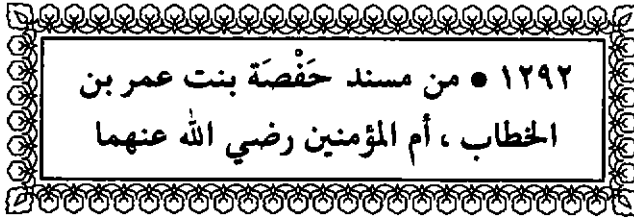 ١٢٩٢ • من مسند حَفْصَة بنت عمر بن
الخطاب ، أم المؤمنين رضي الله عنهما